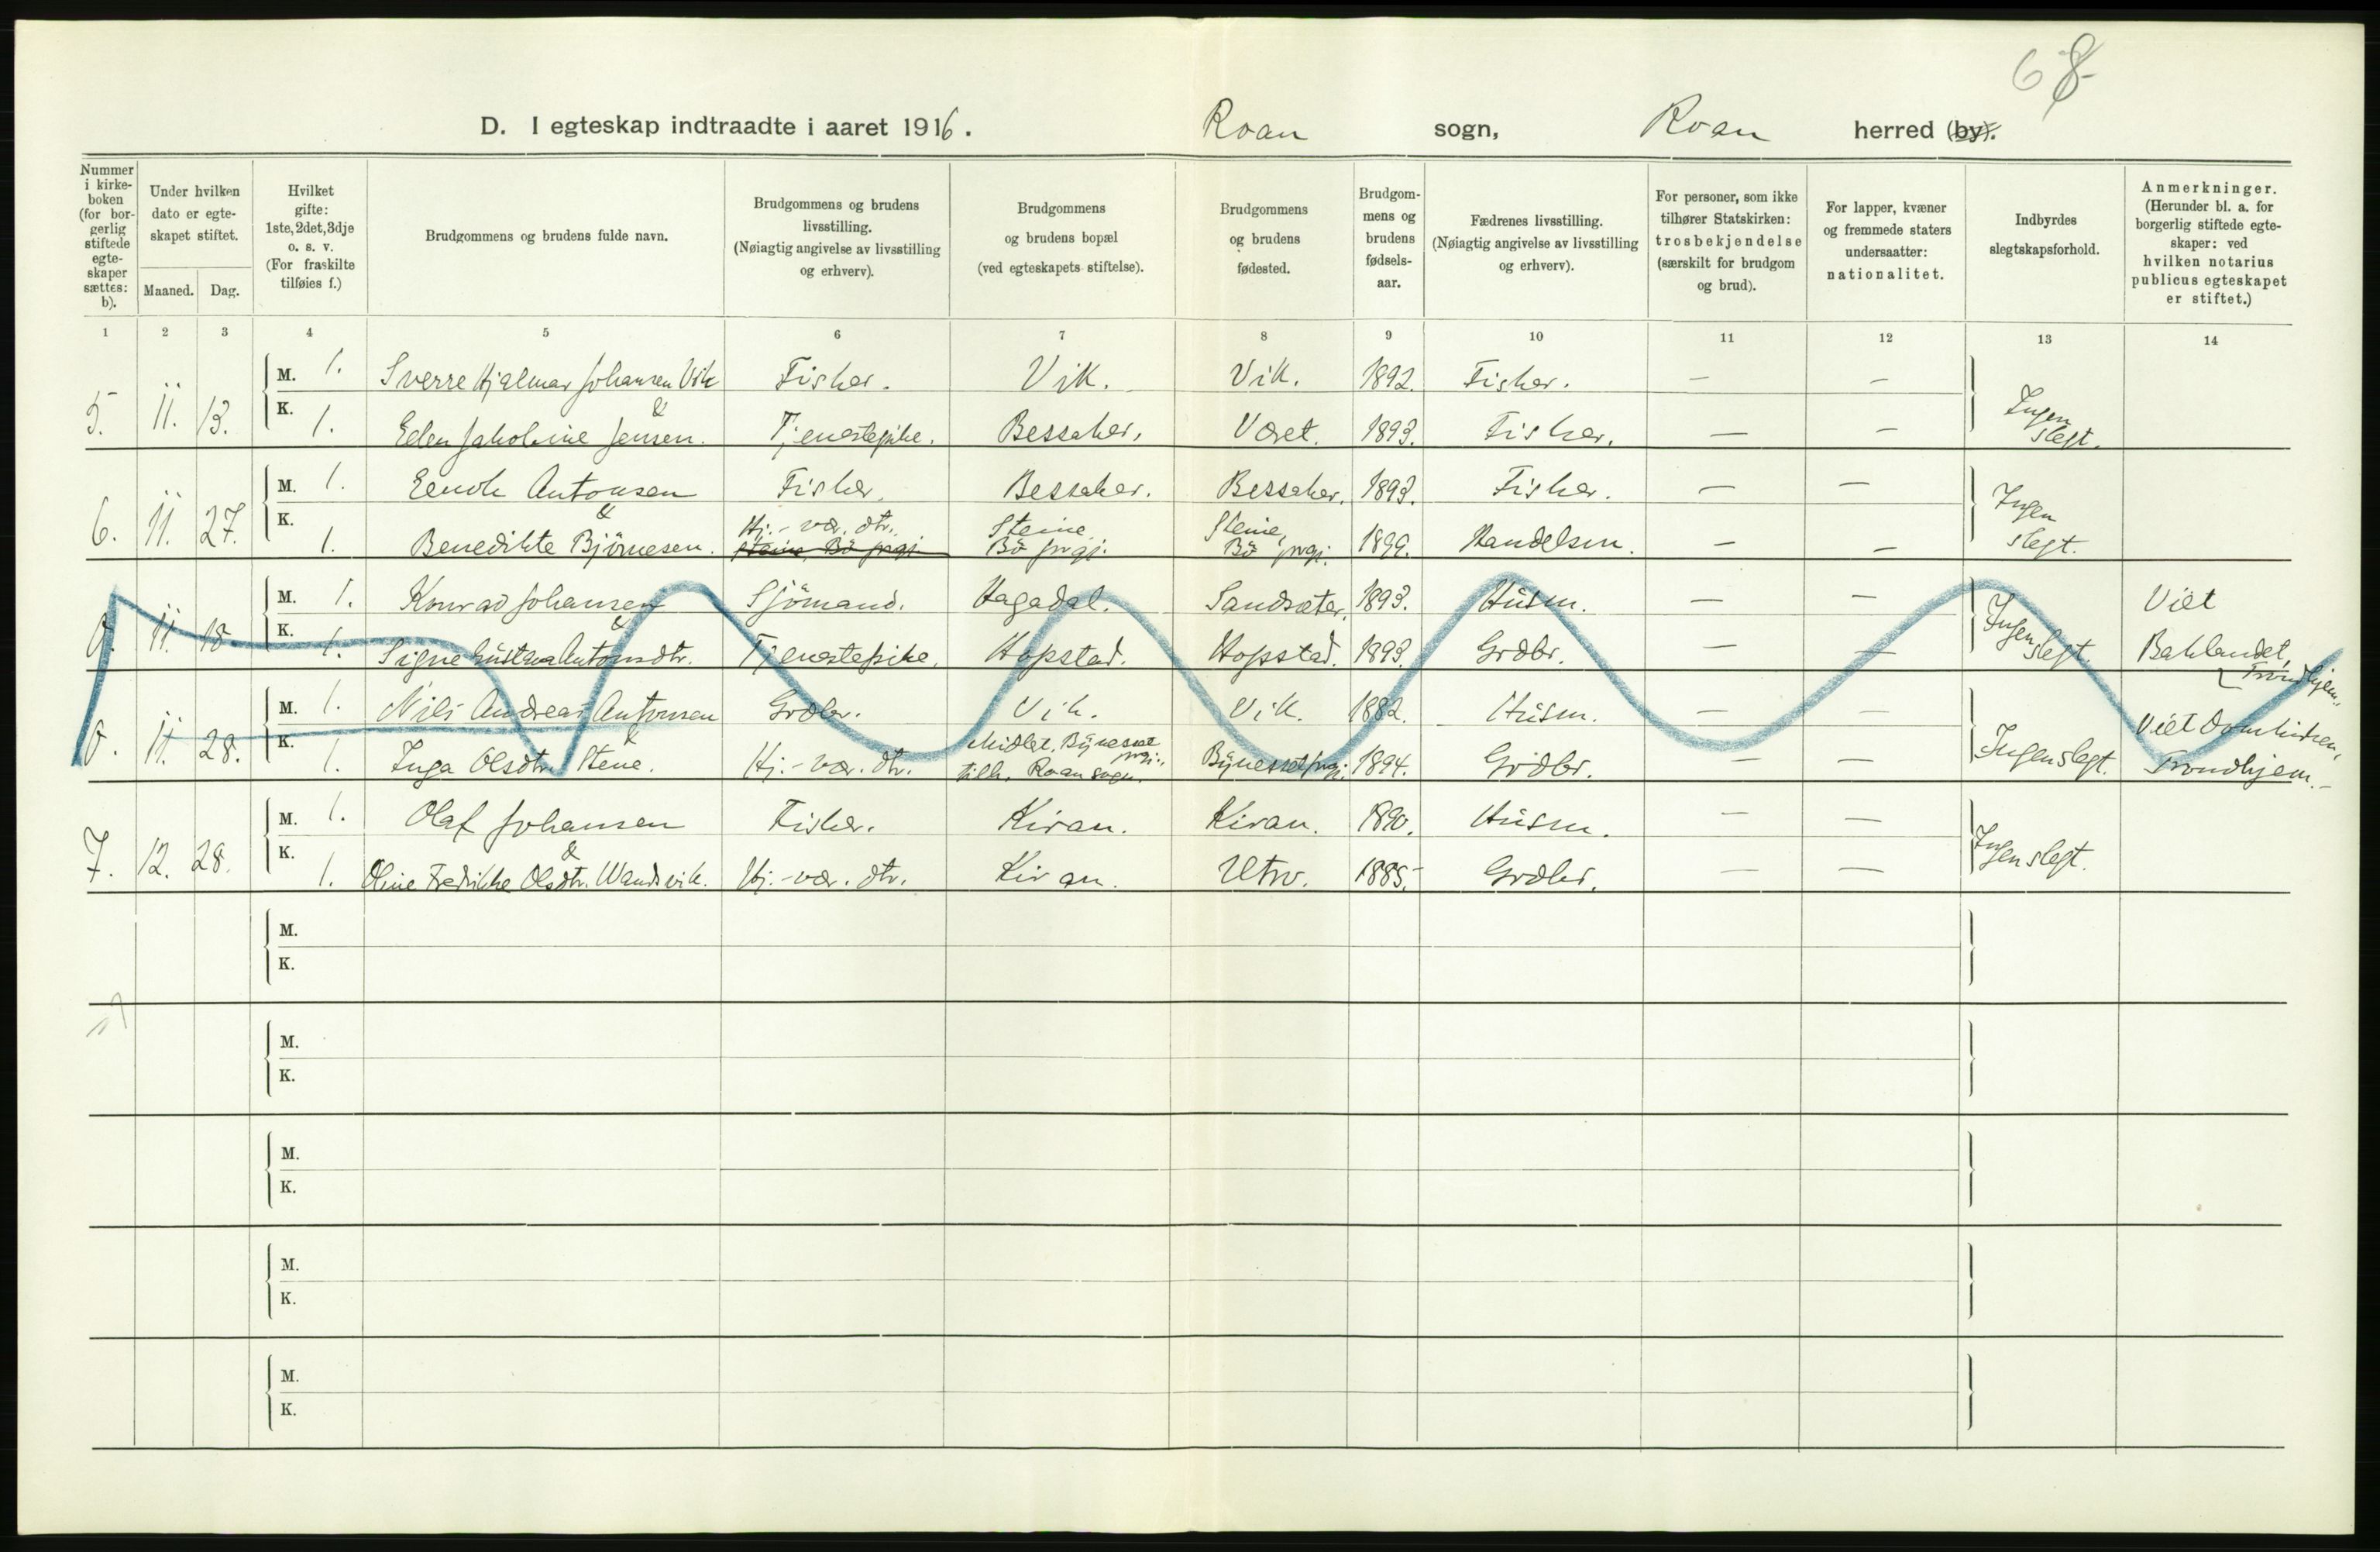 68
D. I egteskap indtraadte i aaret 1916. Roan sogn, Roan herred (by).
Nummer i kirke-boken (for bor-gerlig stiftede egte-skaper sættes: b).
Under hvilken dato er egte-skapet stiftet.
Maaned. Dag.
Hvilket gifte: 1ste, 2det, 3dje o. s. v. (For fraskilte tilføies f.)
Brudgommens og brudens fulde navn.
Brudgommens og brudens livsstilling. (Nøiagtig angivelse av livsstilling og erhverv).
Brudgommens og brudens bopæl (ved egteskapets stiftelse).
Brudgommens og brudens fødested.
Brudgom-mens og brudens fødsels-aar.
Fædrenes livsstilling. (Nøiagtig angivelse av livsstilling og erhverv).
For personer, som ikke tilhører Statskirken: trosbekjendelse (særskilt for brudgom og brud).
For lapper, kvæner og fremmede staters undersaatter: nationalitet.
Indbyrdes slegtskapsforhold.
Anmerkninger. (Herunder bl. a. for borgerlig stiftede egte-skaper: ved hvilken notarius publicus egteskapet er stiftet.)
1 2 3 4 5 6 7 8 9 10 11 12 13 14
M. 1. Sverre Hjalmar Johansen Vik Fisker. Vik. Vik. 1892. Fisker. — —
5. 11. 13. K. 1. & Eelen Jakobine Jensen. Tjenestepike. Bessaker. Været. 1893. Fisker. — — Ingen slegt.
M. 1. Eenok Antonsen Fisker. Bessaker. Bessaker. 1893. Fisker. — —
6. 11. 27. K. 1. & Benedikte Björnesen. Hj.-vær. dtr. Steine, Bö prgj. Steine, Bö prgj. Steine, Bö prgj. 1899. Handelsm. — — Ingen slegt.
M. 1. Konrad Johansen Sjömand. Hagadal. Sandsæter. 1893. Hüsm. — — Viet
0. 11. 18. K. 1. & Signe Güstava Antonsdtr. Tjenestepike. Hopstad. Hopstad. 1893. Grdbr. — — Ingen slegt. Baklandet, Trondhjem.
M. 1. Nils Andreas Antonsen Grdbr. Vik. Vik. 1882. Hüsm. — — Viet Domkirken,
0. 11. 28. K. 1. & Inga Olsdtr. Stene. Hj.-vær. dtr. Midlet. Bynesset prgj., tilh. Roan sogn. Bynesset prgj. 1894. Grdbr. — — Ingen slegt. Trondhjem.-
M. 1. Olaf Johansen Fisker. Kiran. Kiran. 1890. Hüsm. — —
7. 12. 28. K. 1. & Oline Fredrikke Olsdtr. Wandsvik. Hj.-vær. dtr. Kiran. Utrv. 1885. Grdbr. — — Ingen slegt.
M.
K.
M.
K.
M.
K.
M.
K.
M.
K.